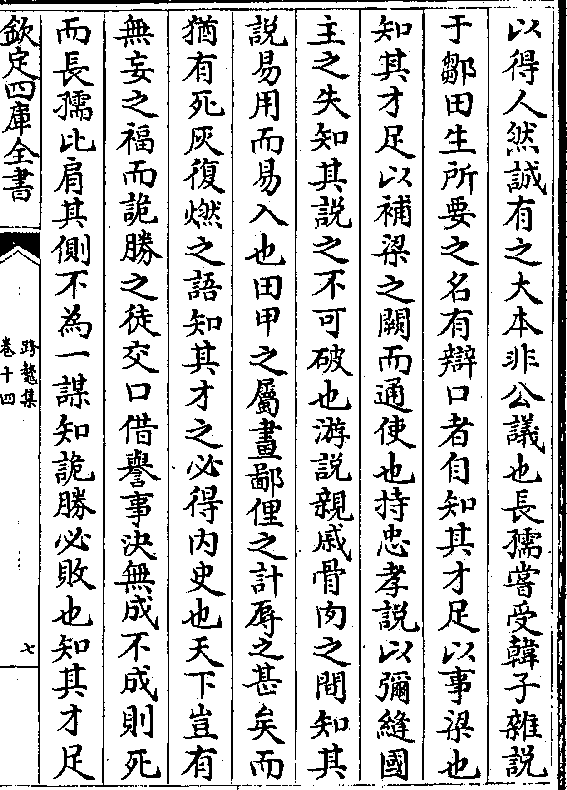 以得人然誠有之大本非公議也長孺嘗受韓子雜說
于鄒田生所要之名有辯口者自知其才足以事梁也
知其才足以補梁之闕而通使也持忠孝說以彌縫國
主之失知其說之不可破也游說親戚骨肉之間知其
說易用而易入也田甲之屬畫鄙俚之計辱之甚矣而
猶有死灰復燃之語知其才之必得内史也天下豈有
無妄之福而詭勝之徒交口借譽事決無成不成則死
而長孺比肩其側不為一謀知詭勝必敗也知其才足
欽定四庫全書
跨鼇集
卷十四
七